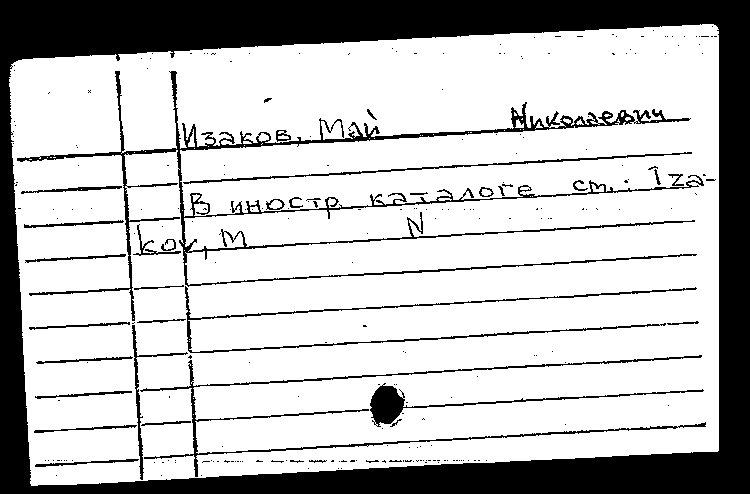 Изаков, Май Николаевич
В иностр. каталоге см.: Iza-
kov, M N